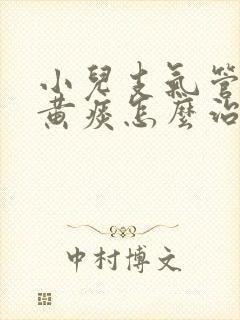 小兒支氣管
黃痰怎麼治
中村博文